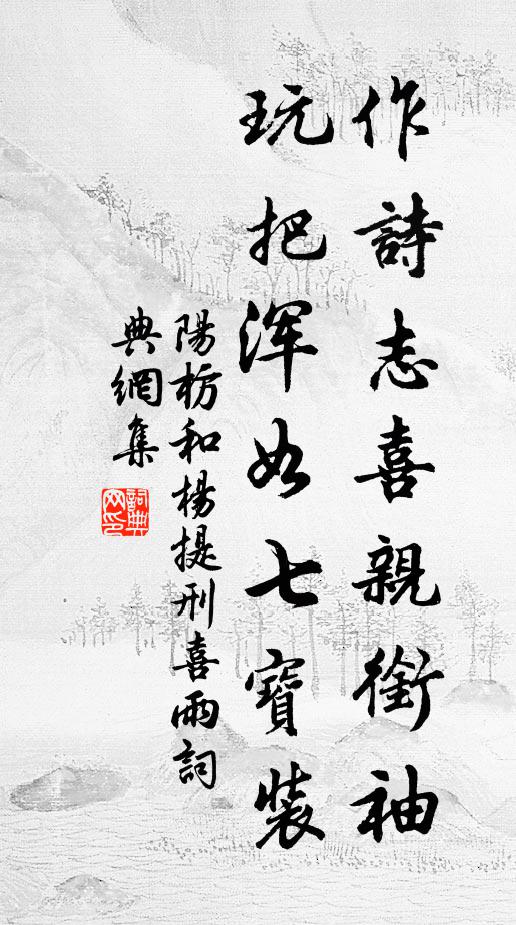 作詩志喜親銜袖
玩把浑如七寶裝
陽枋和楊提刑喜雨詞
典網集
詞典网印